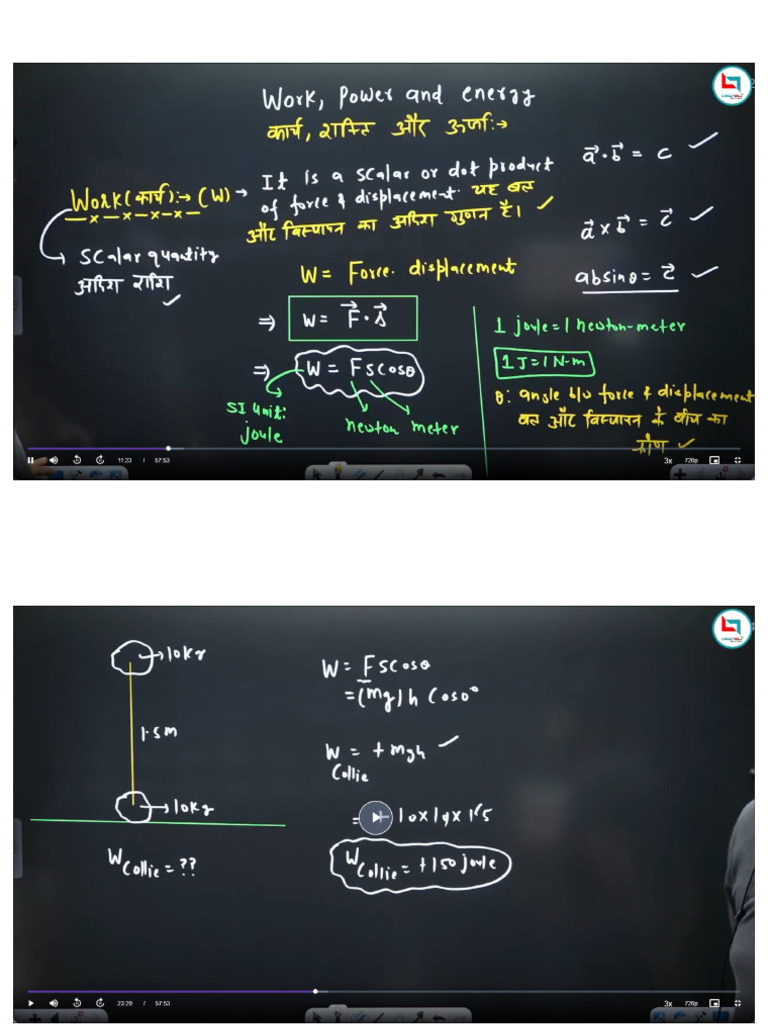 Work, Power and energy
कार्य, शक्ति और ऊर्जा:→
Work(कार्य):→ (W) →
It is a scalar or dot product
of force & displacement. यह बल
और विस्थापन का अदिश गुणन है।
Scalar quantity
अदिश राशि
W = Force. displacement
⇒ W = F⃗·s⃗
⇒ W = Fscosθ
SI unit:
joule
newton
meter
a⃗·b⃗ = c
a⃗ x b⃗ = c⃗
absinθ = c⃗
1 joule = 1 newton-meter
1 J = 1 N-m
θ: angle b/w force & displacement
बल और विस्थापन के बीच का
कोण
11:23 / 57:53
3x 720p
10Kg
1.5m
10Kg
W Collie = ??
W = Fscosθ
= (mg)h Cos0°
W Collie = + mgh
W Collie = +150 joule
23:29 / 57:53
3x 720p